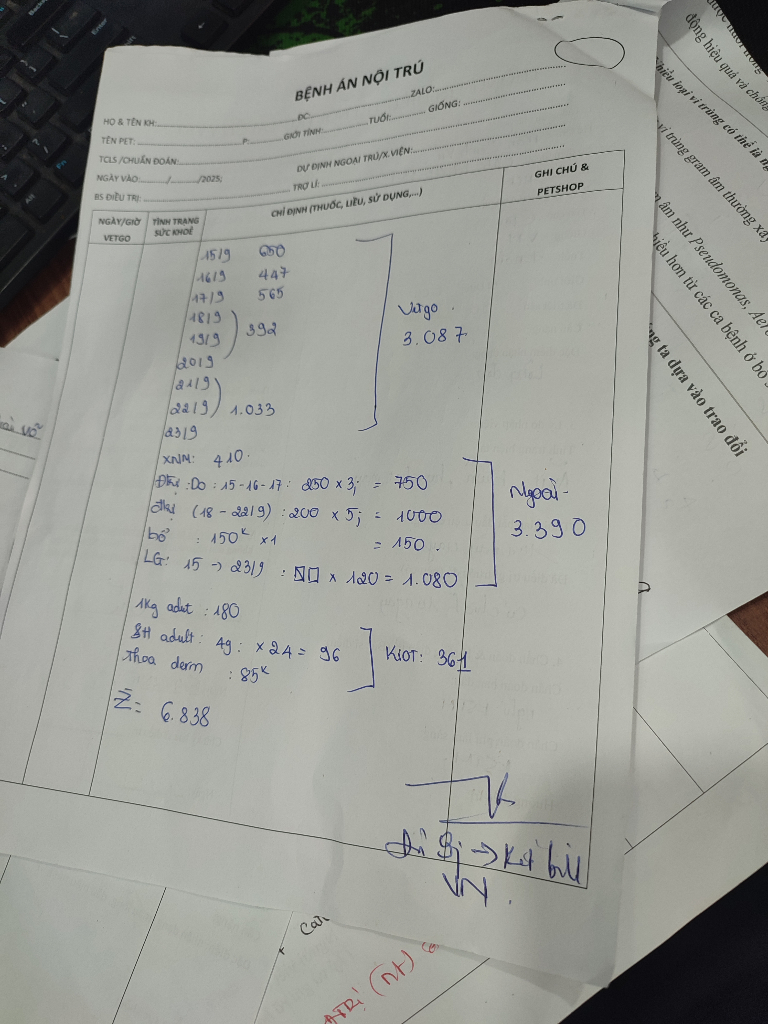 BỆNH ÁN NỘI TRÚ
HỌ & TÊN KH: ĐC: ZALO:
TÊN PET: P: GIỚI TÍNH: TUỔI: GIỐNG:
TCLS /CHUẨN ĐOÁN: DỰ ĐỊNH NGOẠI TRÚ/X.VIỆN:
NGÀY VÀO:......./......../2025;
BS ĐIỀU TRỊ: TRỢ LÍ:
NGÀY/GIỜ VETGO
TÌNH TRẠNG SỨC KHOẺ
CHỈ ĐỊNH (THUỐC, LIỀU, SỬ DỤNG,...)
GHI CHÚ & PETSHOP
15/9 650
16/9 447
17/9 565
18/9
19/9 392
20/9
21/9
22/9 1.033
23/9
Vetgo
3.087
XNM: 410
Do: 15-16-17: 250 x 3; = 750
(18 - 22/9) : 200 x 5; = 1000
bổ : 150K x1 = 150.
LG: 15 → 23/9 : x 120 = 1.080
Ngoài
3.390
1kg adut : 180
SH adult: 4g: x 24 = 96
Thoa derm : 85K
KiOT: 361
6.838
→ Kí bill
VN.
động hiệu quả và chống
vi trùng gram âm thường xảy
âm như Pseudomonas, Aer
hiều hơn từ các ca bệnh ở bò s
ng ta dựa vào trao đổi